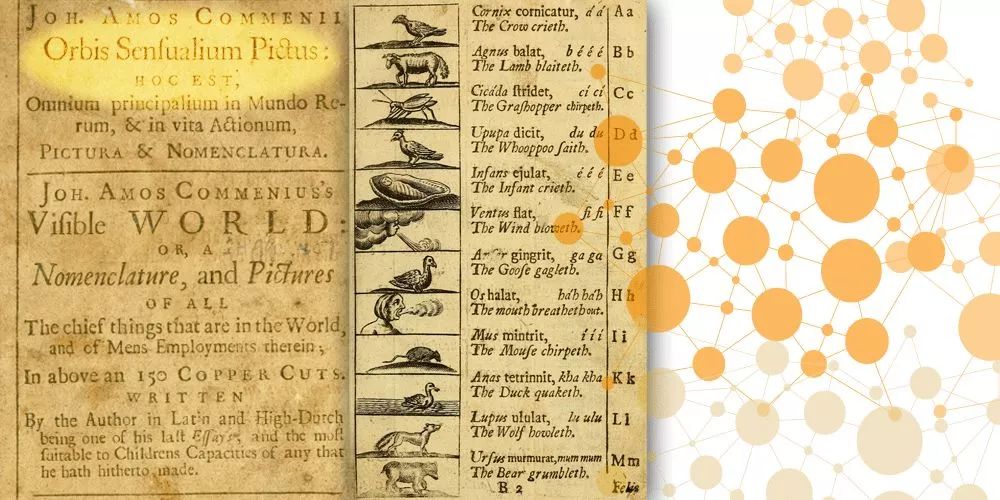 JOH. AMOS COMMENII
Orbis Senſualium Pictus:
HOC EST,
Omnium principalium in Mundo Re-
rum, & in vita Actionum,
PICTURA & NOMENCLATURA.
JOH. AMOS COMMENIUS's
Viſible WORLD:
OR, A
Nomenclature, and Pictures
OF ALL
The chief things that are in the World,
and of Mens Employments therein;
In above an 150 COPPER CUTS.
WRITTEN
By the Author in Latin and High-Dutch
being one of his laſt Eſſays, and the moſt
ſuitable to Childrens Capacities of any that
he hath hitherto made.
Cornix cornicatur, á á A a
The Crow crieth.
Agnus balat, b é é é B b
The Lamb blaiteth.
Cicáda ſtridet, ci cí C c
The Graſhopper chirpeth.
Upupa dicit, du du D d
The Whooppoo ſaith.
Infans ejulat, é é é E e
The Infant crieth.
Ventus flat, fi fi F f
The Wind bloweth.
gingrit, ga ga G g
The Gooſe gagleth.
Os halat, há'h há'h H h
The mouth breatheth out.
Mus mintrit, í í í I i
The Mouſe chirpeth.
Anas tetrinnit, kha kha K k
The Duck quaketh.
Lupus ululat, lu ulu L l
The Wolf howleth.
Urſus murmurat, mum mum M m
The Bear grumbleth.
B 2 Felis